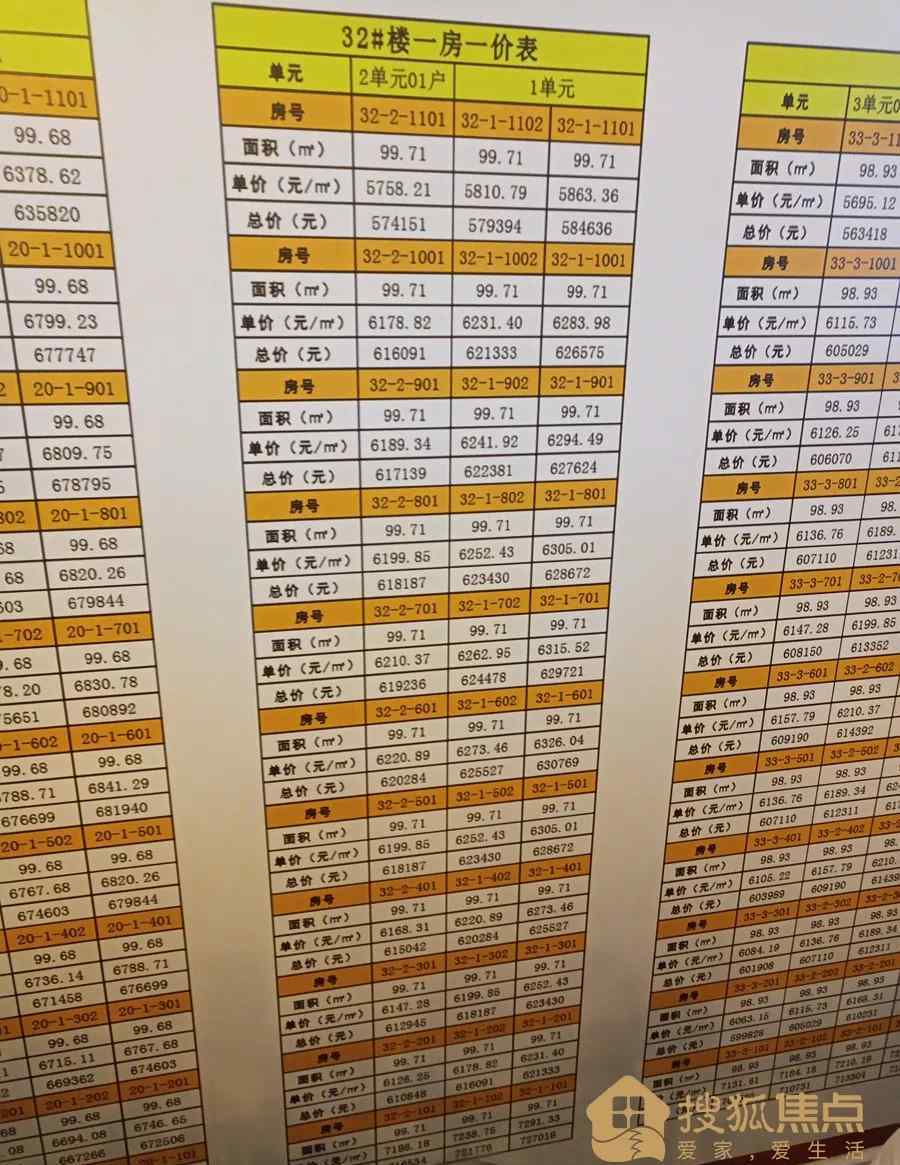 0-1-1101
99.68
6378.62
635820
20-1-1001
99.68
6799.23
677747
20-1-901
99.68
6809.75
678795
802 20-1-801
68 99.68
68 6820.26
603 679844
1-702 20-1-701
.68 99.68
78.20 6830.78
75651 680892
0-1-602 20-1-601
99.68 99.68
6788.71 6841.29
676699 681940
20-1-502 20-1-501
99.68 99.68
6767.68 6820.26
674603 679844
20-1-402 20-1-401
99.68 99.68
6736.14 6788.71
671458 676699
20-1-302 20-1-301
99.68 99.68
6715.11 6767.68
669362 674603
20-1-202 20-1-201
99.68 99.68
6694.08 6746.65
667266 672506
20-1-101
32#楼一房一价表
单元 2单元01户 1单元
房号 32-2-1101 32-1-1102 32-1-1101
面积（㎡） 99.71 99.71 99.71
单价（元/㎡） 5758.21 5810.79 5863.36
总价（元） 574151 579394 584636
房号 32-2-1001 32-1-1002 32-1-1001
面积（㎡） 99.71 99.71 99.71
单价（元/㎡） 6178.82 6231.40 6283.98
总价（元） 616091 621333 626575
房号 32-2-901 32-1-902 32-1-901
面积（㎡） 99.71 99.71 99.71
单价（元/㎡） 6189.34 6241.92 6294.49
总价（元） 617139 622381 627624
房号 32-2-801 32-1-802 32-1-801
面积（㎡） 99.71 99.71 99.71
单价（元/㎡） 6199.85 6252.43 6305.01
总价（元） 618187 623430 628672
房号 32-2-701 32-1-702 32-1-701
面积（㎡） 99.71 99.71 99.71
单价（元/㎡） 6210.37 6262.95 6315.52
总价（元） 619236 624478 629721
房号 32-2-601 32-1-602 32-1-601
面积（㎡） 99.71 99.71 99.71
单价（元/㎡） 6220.89 6273.46 6326.04
总价（元） 620284 625527 630769
房号 32-2-501 32-1-502 32-1-501
面积（㎡） 99.71 99.71 99.71
单价（元/㎡） 6199.85 6252.43 6305.01
总价（元） 618187 623430 628672
房号 32-2-401 32-1-402 32-1-401
面积（㎡） 99.71 99.71 99.71
单价（元/㎡） 6168.31 6220.89 6273.46
总价（元） 615042 620284 625527
房号 32-2-301 32-1-302 32-1-301
面积（㎡） 99.71 99.71 99.71
单价（元/㎡） 6147.28 6199.85 6252.43
总价（元） 612945 618187 623430
房号 32-2-201 32-1-202 32-1-201
面积（㎡） 99.71 99.71 99.71
单价（元/㎡） 6126.25 6178.82 6231.40
总价（元） 610848 616091 621333
房号 32-2-101 32-1-102 32-1-101
面积（㎡） 99.71 99.71 99.71
单价（元/㎡） 7186.18 7238.75 7291.33
总价（元） 721776 727018
单元 3单元0
房号 33-3-11
面积（㎡） 98.93
单价（元/㎡） 5695.12
总价（元） 563418
房号 33-3-1001
面积（㎡） 98.93
单价（元/㎡） 6115.73
总价（元） 605029
房号 33-3-901
面积（㎡） 98.93
单价（元/㎡） 6126.25
总价（元） 606070
房号 33-3-801 33-2
面积（㎡） 98.93 98.
单价（元/㎡） 6136.76 6189.
总价（元） 607110 61231
房号 33-3-701 33-2-70
面积（㎡） 98.93 98.93
单价（元/㎡） 6147.28 6199.85
总价（元） 608150 613352
房号 33-3-601 33-2-602
面积（㎡） 98.93 98.93
单价（元/㎡） 6157.79 6210.37
总价（元） 609190 614392
房号 33-3-501 33-2-502
面积（㎡） 98.93 98.93
单价（元/㎡） 6136.76 6189.34
总价（元） 607110 612311
房号 33-3-401 33-2-402
面积（㎡） 98.93 98.93
单价（元/㎡） 6105.22 6157.79 6210.
总价（元） 603989 609190 61439
房号 33-3-301 33-2-302
面积（㎡） 98.93 98.93 98.93
单价（元/㎡） 6084.19 6136.76 6189.34
总价（元） 601908 607110 612311
房号 33-3-201 33-2-202 33-2-201
面积（㎡） 98.93 98.93 98.93
单价（元/㎡） 6063.15 6115.73 6168.31
总价（元） 599828 605029 610231
房号 33-3-101 33-2-102 33-2-101
面积（㎡） 98.93 98.93 98.93
单价（元/㎡） 7131.61 7184.18
710731 713304
搜狐焦点
爱家，爱生活